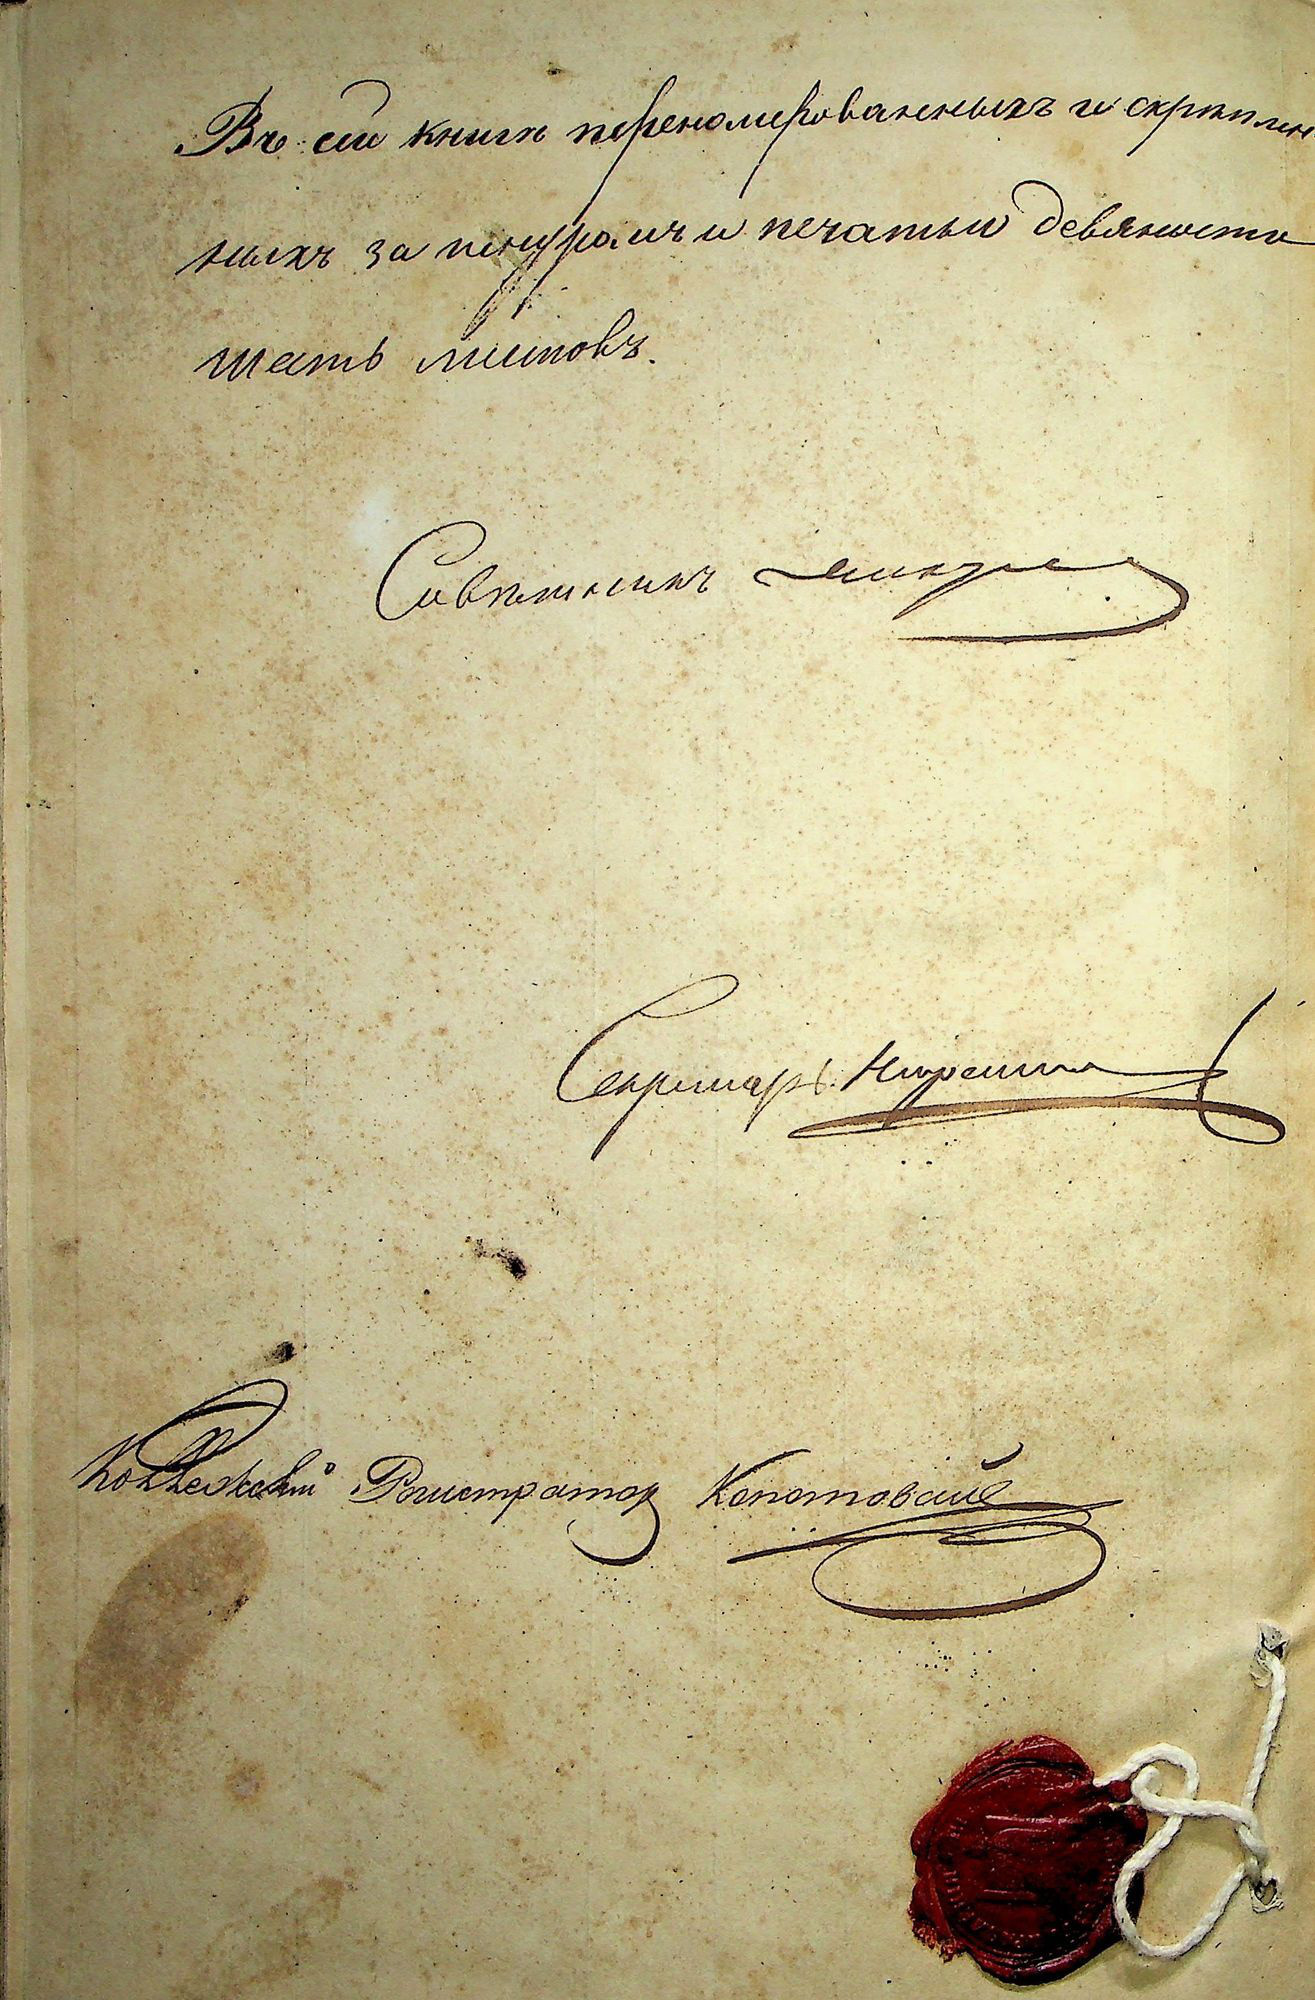 Въ сей книгѣ переномерованныхъ и скрѣплен
ныхъ за шнуромъ и печатью девяносто
шесть листовъ.
Совѣтникъ
Секретарь
Коллежскій Регистраторъ